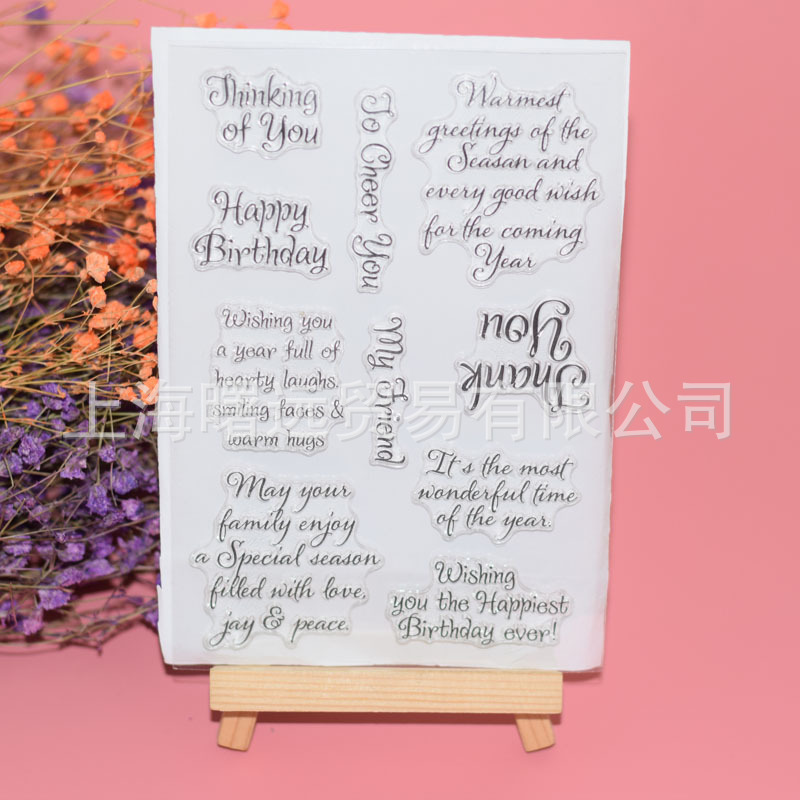 Thinking
of You
To Cheer You
Warmest
greetings of the
Seasan and
every good wish
for the coming
Year
Happy
Birthday
Wishing you
a year full of
hearty laughs,
smiling faces &
warm hugs
My Friend
Thank
You
It's the most
wonderful time
of the year.
May your
family enjoy
a Special season
filled with love,
jay & peace.
Wishing
you the Happiest
Birthday ever!
上海曙远贸易有限公司